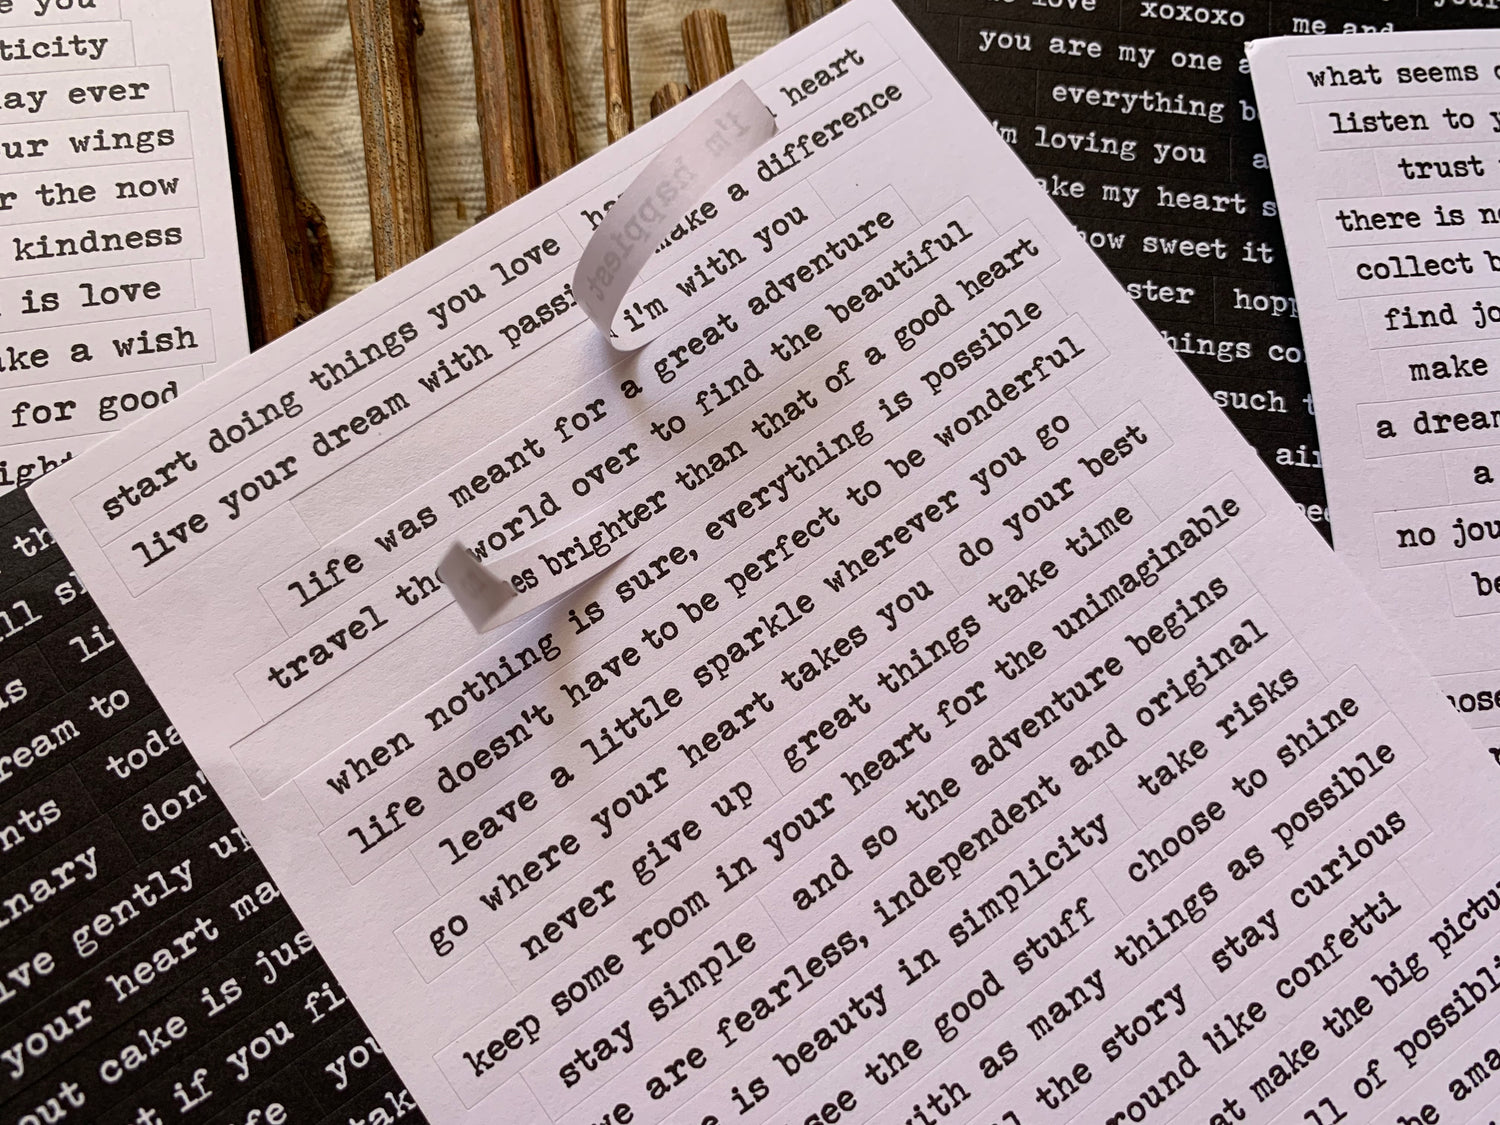 you
ticity
ay ever
ur wings
r the now
kindness
is love
ke a wish
for good
start doing things you love
heart
live your dream with passi
make a difference
i'm happiest
i'm with you
life was meant for a great adventure
travel the world over to find the beautiful
es brighter than that of a good heart
when nothing is sure, everything is possible
life doesn't have to be perfect to be wonderful
leave a little sparkle wherever you go
go where your heart takes you
do your best
never give up
great things take time
keep some room in your heart for the unimaginable
stay simple
and so the adventure begins
we are fearless, independent and original
e is beauty in simplicity
take risks
see the good stuff
choose to shine
with as many things as possible
l the story
stay curious
round like confetti
at make the big pictu
ll of possibli
be ama
love
xoxoxo
me and
you are my one a
everything b
'm loving you
a
ake my heart s
how sweet it
ster
hopp
hings co
such t
air
what seems
listen to y
trust
there is no
collect b
find jo
make
a dream
a
no jou
be
ose
th
ll s
li
s
ream to
nts
toda
don'
inary
ive gently up
your heart ma
out cake is jus
t if you fi
fe
you
tak